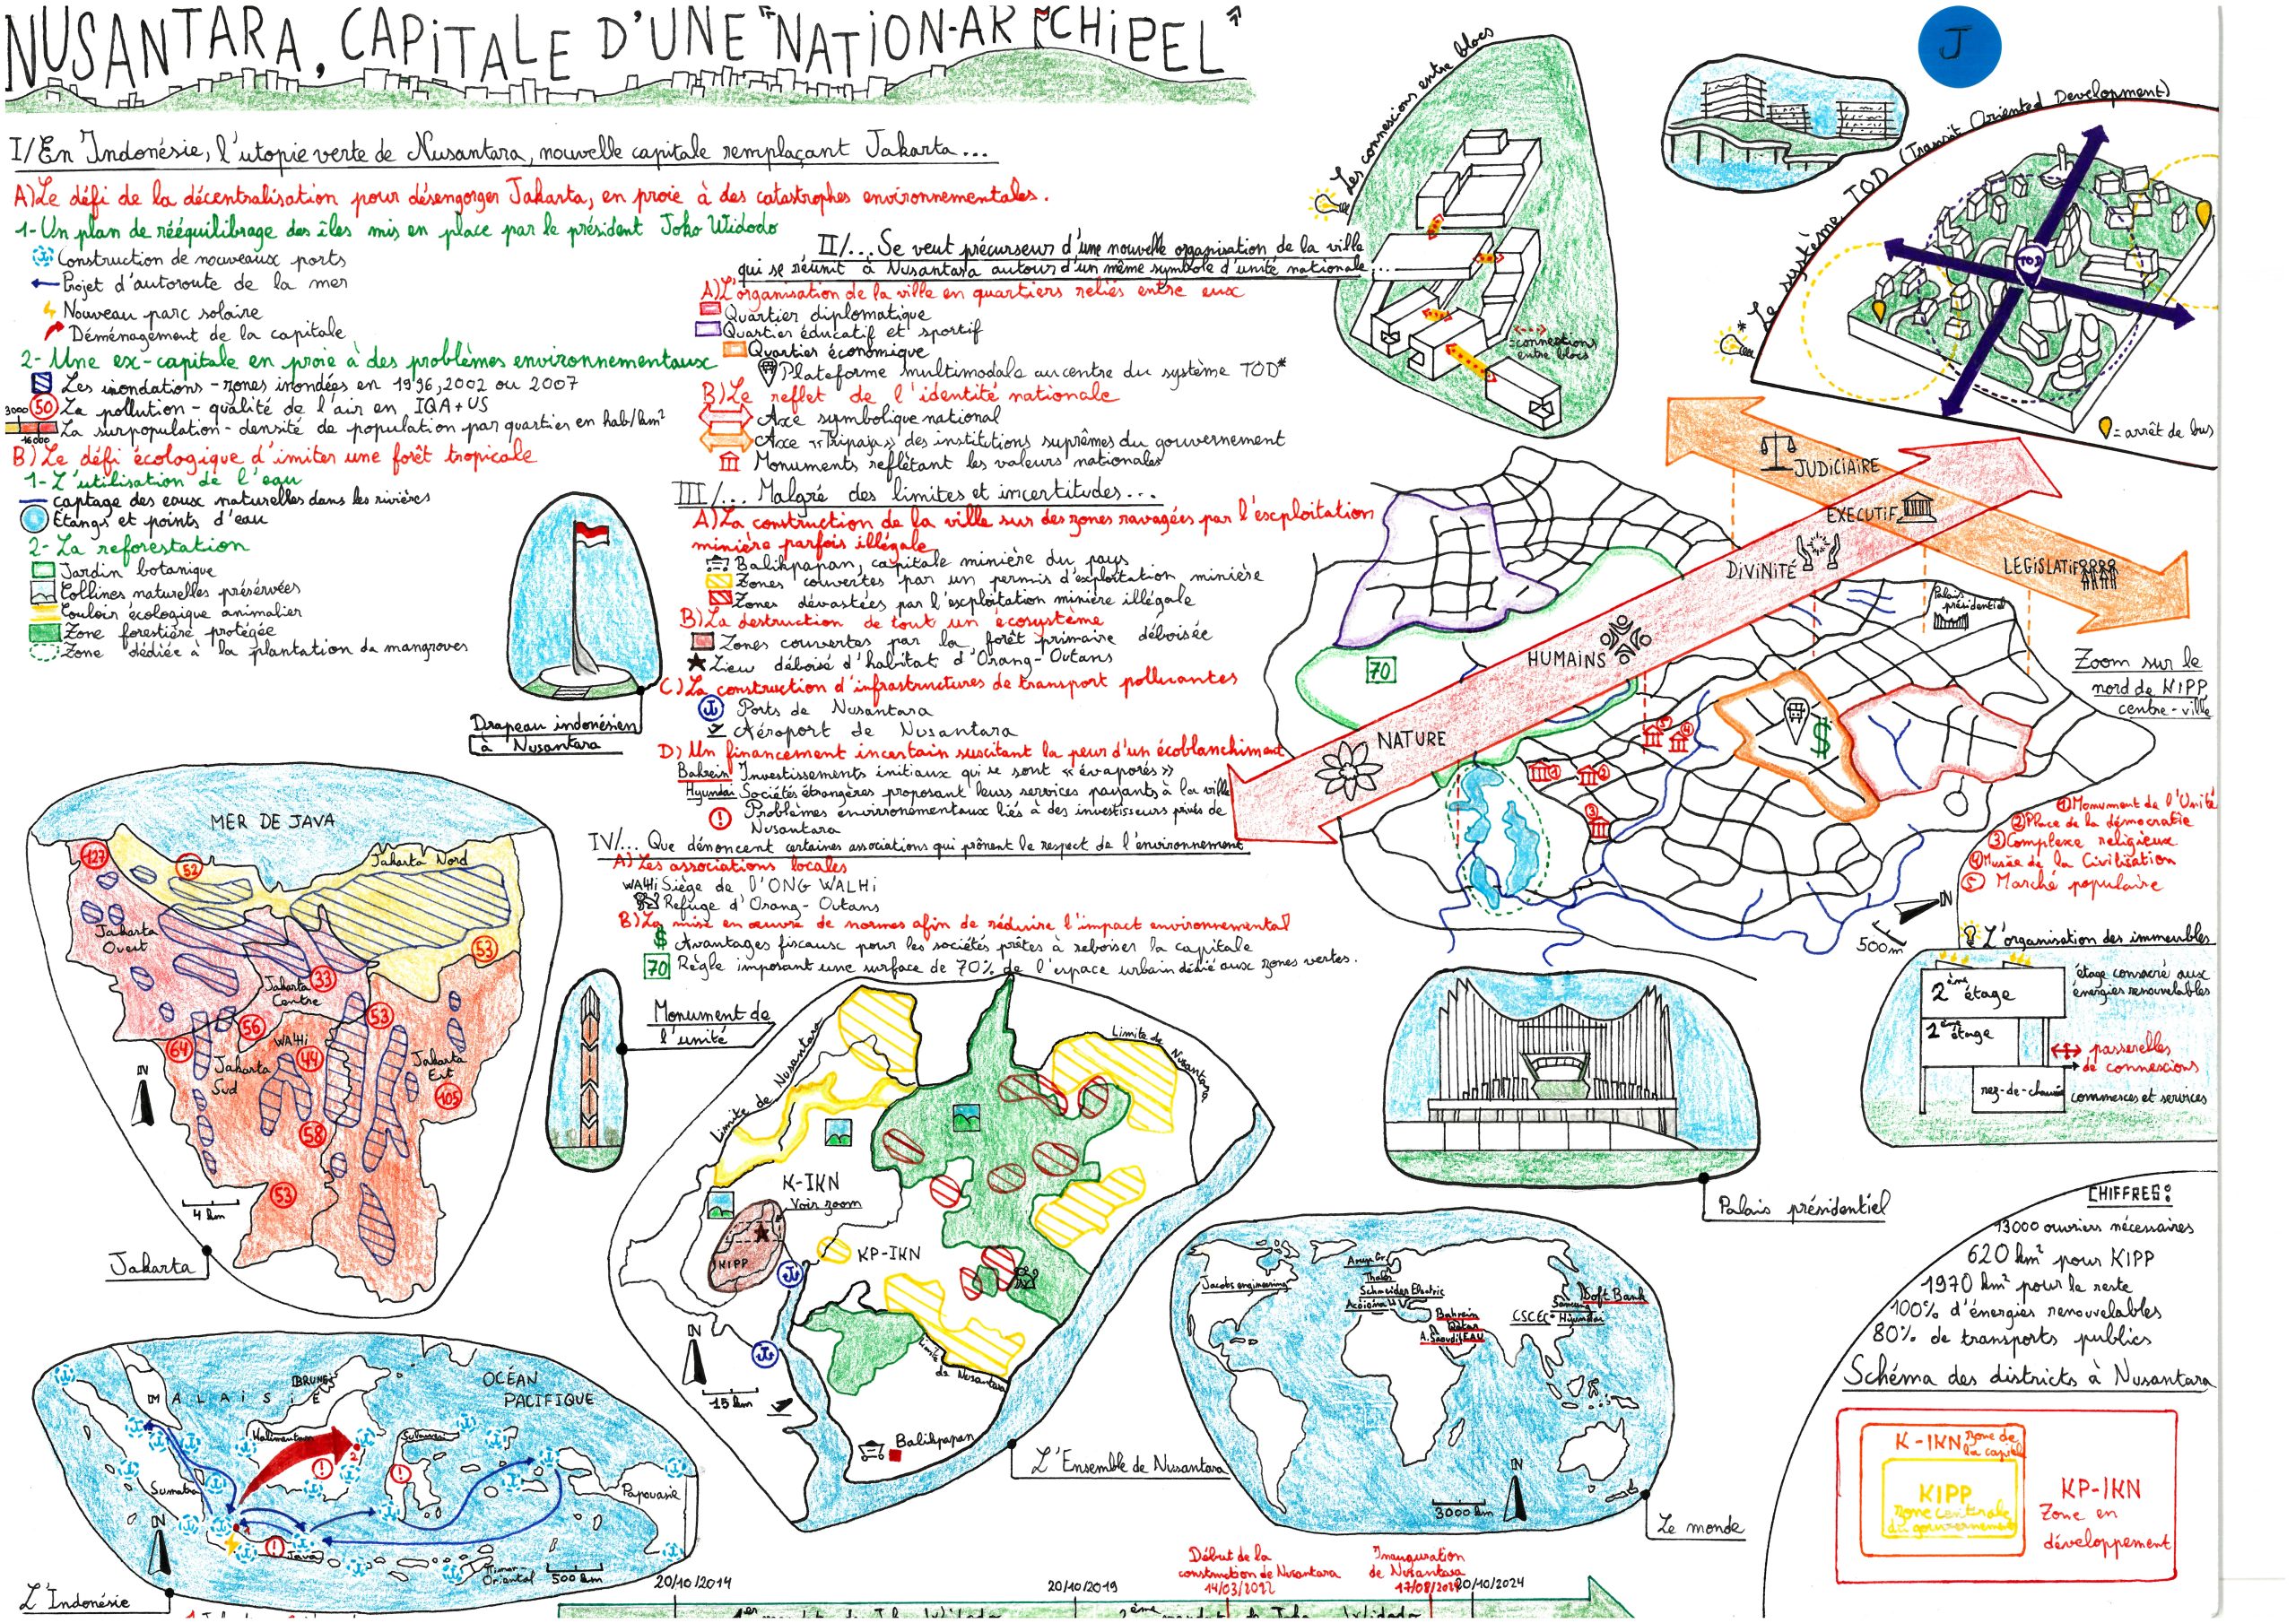 NUSANTARA, CAPITALE D'UNE "NATION-ARCHIPEL"
I/En Indonésie, l'utopie verte de Nusantara, nouvelle capitale remplaçant Jakarta...
A) Le défi de la décentralisation pour désengorger Jakarta, en proie à des catastrophes environnementales.
1-Un plan de rééquilibrage des îles mis en place par le président Joko Widodo
Construction de nouveaux ports
Projet d'autoroute de la mer
Nouveau parc solaire
Déménagement de la capitale
2-Une ex-capitale en proie à des problèmes environnementaux
Les inondations - zones inondées en 1996, 2002 ou 2007
50 La pollution - qualité de l'air en IQA+US
3000
16000
La surpopulation - densité de population par quartier en hab/km²
B) Le défi écologique d'imiter une forêt tropicale
1-L'utilisation de l'eau
captage des eaux naturelles dans les rivières
Etangs et points d'eau
2-La reforestation
Jardin botanique
Collines naturelles préservées
Couloir écologique animalier
Zone forestière protégée
Zone dédiée à la plantation de mangroves
II/... Se veut précurseur d'une nouvelle organisation de la ville
qui se réunit à Nusantara autour d'un même symbole d'unité nationale...
A) L'organisation de la ville en quartiers reliés entre eux
Quartier diplomatique
Quartier éducatif et sportif
Quartier économique
Plateforme multimodale au centre du système TOD*
B) Le reflet de l'identité nationale
Axe symbolique national
Axe «Tripaja» des institutions suprêmes du gouvernement
Monuments reflétant les valeurs nationales
III/... Malgré des limites et incertitudes...
A) La construction de la ville sur des zones ravagées par l'exploitation
minière parfois illégale
Balikpapan, capitale minière du pays
Zones couvertes par un permis d'exploitation minière
Zones dévastées par l'exploitation minière illégale
B) La destruction de tout un écosystème
Zones couvertes par la forêt primaire déboisée
Lieu déboisé d'habitat d'Orang-Outans
C) La construction d'infrastructures de transport polluantes
Ports de Nusantara
Aéroport de Nusantara
D) Un financement incertain suscitant la peur d'un écoblanchiment
Bahrein Investissements initiaux qui se sont «évaporés»
Hyundai Sociétés étrangères proposant leurs services payants à la ville
Problèmes environnementaux liés à des investisseurs privés de
Nusantara
IV/... Que dénoncent certaines associations qui prônent le respect de l'environnement
A) Les associations locales
WALHI Siège de l'ONG WALHI
Refuge d'Orang-Outans
B) La mise en œuvre de normes afin de réduire l'impact environnemental
$ Avantages fiscaux pour les sociétés prêtes à reboiser la capitale
70 Règle imposant une surface de 70% de l'espace urbain dédié aux zones vertes.
Les connexions entre blocs
= connections
entre blocs
J
*Le système TOD (Transit Oriented Development)
TOD
= arrêt de bus
Drapeau indonésien
à Nusantara
JUDICIAIRE
EXECUTIF
LEGISLATIF
DIVINITÉ
HUMAINS
NATURE
70
Palais
présidentiel
$
Zoom sur le
nord de KIPP
centre-ville
1
2
3
4
5
① Monument de l'Unité
② Place de la démocratie
③ Complexe religieux
④ Musée de la Civilisation
⑤ Marché populaire
N
500m
L'organisation des immeubles
2ème étage
étage consacré aux
énergies renouvelables
1ème étage
passerelles
de connexions
rez-de-chaussée
commerces et services
MER DE JAVA
127
52
Jakarta Nord
Jakarta
Ouest
53
Jakarta
Centre
33
53
56
64
WALHI
44
Jakarta
Sud
Jakarta
Est
105
58
53
N
4 km
Jakarta
Monument de
l'unité
Limite de Nusantara
Limite de Nusantara
K-IKN
Voir zoom
KIPP
KP-IKN
Limite
de Nusantara
N
15 km
Balikpapan
L'Ensemble de Nusantara
Palais présidentiel
Jacobs engineering
Arup Gr.
Thales
Schneider Electric
Acciona
Bahrein
Qatar
A. Saoudite
EAU
CSCEC
Samsung
Hyundai
Soft Bank
N
3000 km
Le monde
CHIFFRES:
13000 ouvriers nécessaires
620 km² pour KIPP
1970 km² pour le reste
100% d'énergies renouvelables
80% de transports publics
Schéma des districts à Nusantara
K-IKN zone de
la capitale
KIPP
zone centrale
du gouvernement
KP-IKN
Zone en
développement
MALAISIE
BRUNEI
OCÉAN
PACIFIQUE
Kalimantan
2
Sulawesi
Sumatra
Papouasie
1
Java
Timor-
Oriental
500 km
N
L'Indonésie
20/10/2014
20/10/2019
Début de la
construction de Nusantara
14/03/2022
Inauguration
de Nusantara
20/10/2024
1er mandat de Joko Widodo
2ème mandat de Joko Widodo